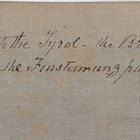 to the Tyrol - the Br
the Finstermunz pa